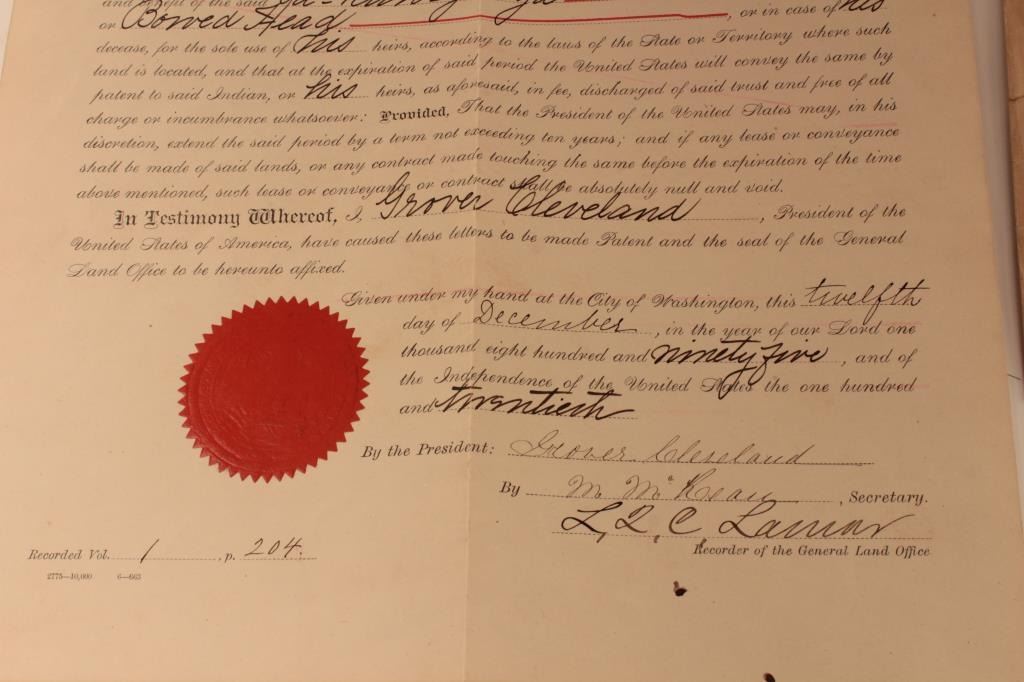 and benefit of the said
or Bowed Head, or in case of his
decease, for the sole use of his heirs, according to the laws of the State or Territory where such
land is located, and that at the expiration of said period the United States will convey the same by
patent to said Indian, or his heirs, as aforesaid, in fee, discharged of said trust and free of all
charge or incumbrance whatsoever: Provided, That the President of the United States may, in his
discretion, extend the said period by a term not exceeding ten years; and if any lease or conveyance
shall be made of said lands, or any contract made touching the same before the expiration of the time
above mentioned, such lease or conveyance or contract shall be absolutely null and void.
In Testimony Whereof, I, Grover Cleveland, President of the
United States of America, have caused these letters to be made Patent and the seal of the General
Land Office to be hereunto affixed.
Given under my hand at the City of Washington, this twelfth
day of December, in the year of our Lord one
thousand eight hundred and ninety five, and of
the Independence of the United States the one hundred
and twentieth
By the President: Grover Cleveland
By M. McKean, Secretary.
L. Q. C. Lamar
Recorder of the General Land Office
Recorded Vol. 1, p. 204.
2775—10,000 6—663